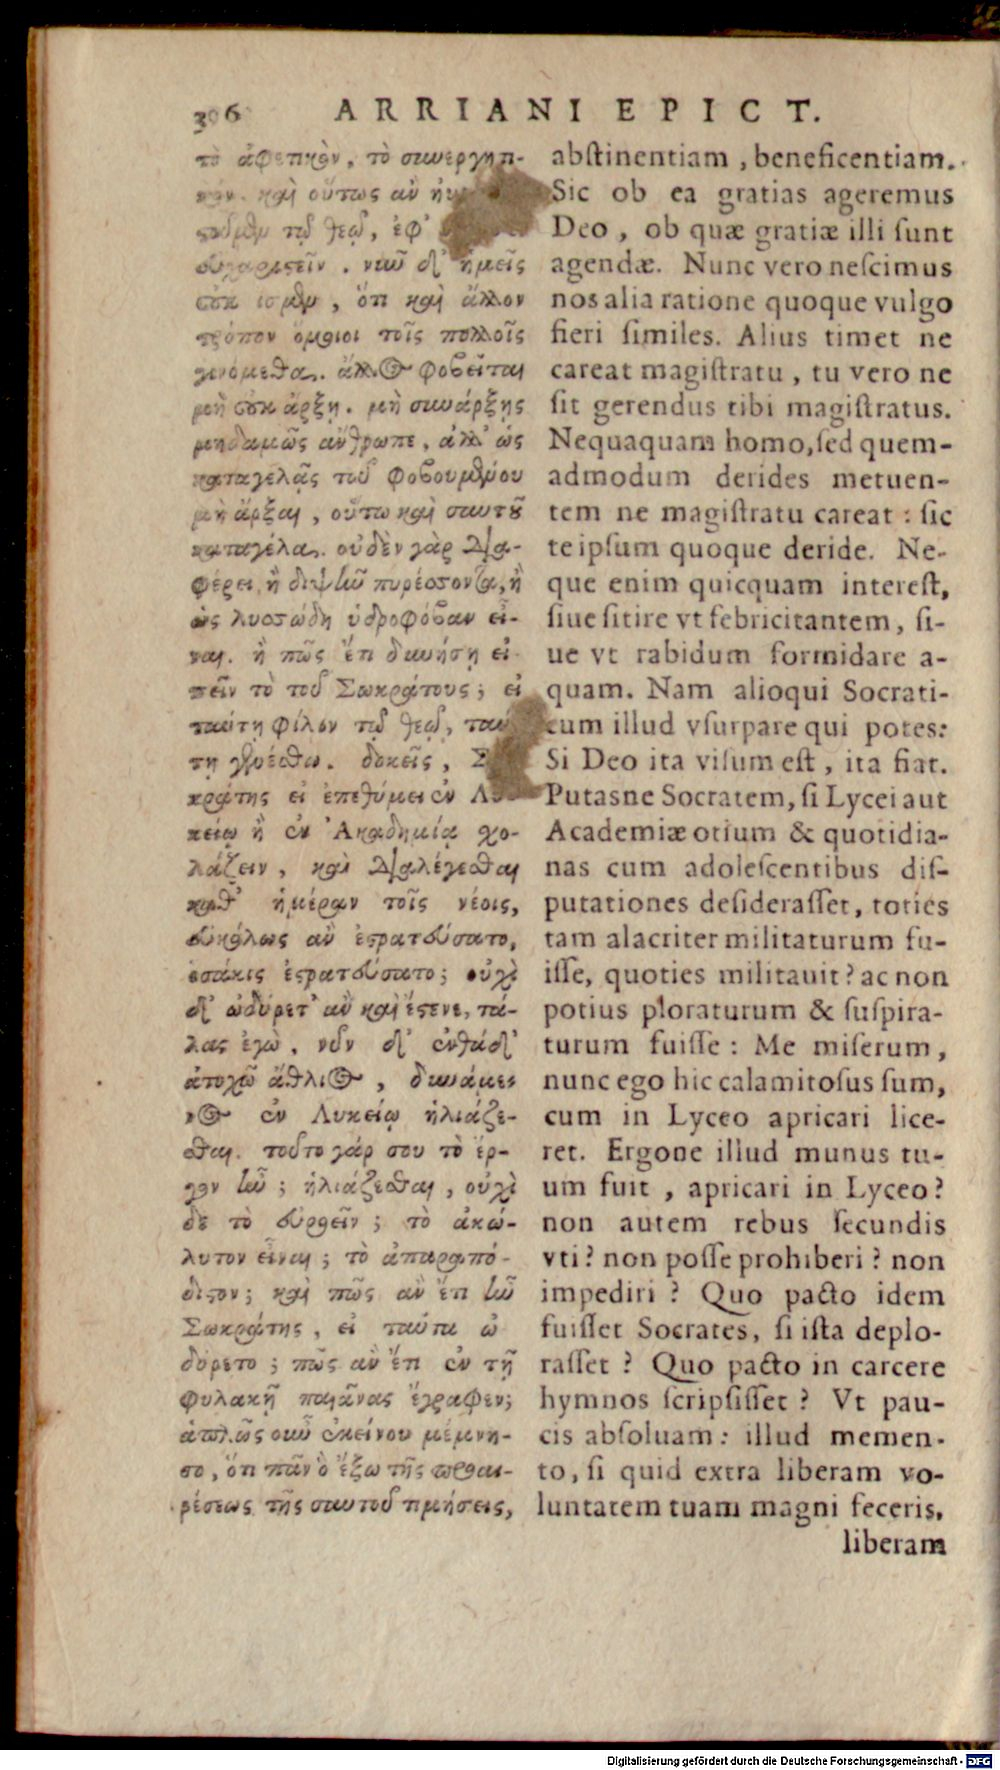 306 ARRIANI EPICT.
τὸ ἀφετικὸν, τὸ συνεργητι-
κόν. καὶ οὕτως ἂν
τῷ θεῷ, ἐφ'
εὐχαριστεῖν. νῦν δ' ἡμεῖς
οὐκ ἴσμεν, ὅτι καὶ ἄλλον
τρόπον ὅμοιοι τοῖς πολλοῖς
γινόμεθα. ἄλλος φοβεῖται
μὴ οὐκ ἄρξῃ. μὴ συνάρξῃς
μηδαμῶς ἄνθρωπε, ἀλλ' ὡς
καταγελᾷς τοῦ φοβουμένου
μὴ ἄρξαι, οὕτω καὶ σαυτοῦ
καταγέλα. οὐδὲν γὰρ δια-
φέρει ἢ διψῶν πυρέσσοντα, ἢ
ὡς λυσσώδη ὑδροφόβαν εἶ-
ναι. ἢ πῶς ἔτι δυνήσῃ εἰ-
πεῖν τὸ τοῦ Σωκράτους; εἰ
ταύτῃ φίλον τῷ θεῷ, ταύ
τῃ γενέσθω. δοκεῖς, Σ
κράτης εἰ ἐπεθύμει ἐν Λυ
κείῳ ἢ ἐν Ἀκαδημίᾳ σχο-
λάζειν, καὶ διαλέγεσθαι
καθ' ἡμέραν τοῖς νέοις,
εὐκόλως ἂν ἐστρατεύσατο,
ὁσάκις ἐστρατεύσατο; οὐχὶ
δ' ὠδύρετ' ἂν καὶ ἔστενε, τά-
λας ἐγὼ, νῦν δ' ἐνθάδ'
ἀτυχῶ ἄθλιος, δυνάμε-
νος ἐν Λυκείῳ ἡλιάζε-
σθαι. τοῦτο γάρ σου τὸ ἔρ-
γον ἦν; ἡλιάζεσθαι, οὐχὶ
δὲ τὸ εὐροεῖν; τὸ ἀκώ-
λυτον εἶναι; τὸ ἀπαραπό-
διστον; καὶ πῶς ἂν ἔτι ἦν
Σωκράτης, εἰ ταῦτα ὠ
δύρετο; πῶς ἂν ἔτι ἐν τῇ
φυλακῇ παιᾶνας ἔγραφεν;
ἁπλῶς οὖν ἐκείνου μέμνη-
σο, ὅτι πᾶν ὃ ἔξω τῆς προαι-
ρέσεως τῆς σαυτοῦ τιμήσεις,
abstinentiam, beneficentiam.
Sic ob ea gratias ageremus
Deo, ob quæ gratiæ illi sunt
agendæ. Nunc vero nescimus
nos alia ratione quoque vulgo
fieri similes. Alius timet ne
careat magistratu, tu vero ne
sit gerendus tibi magistratus.
Nequaquam homo, sed quem-
admodum derides metuen-
tem ne magistratu careat: sic
teipsum quoque deride. Ne-
que enim quicquam interest,
siue sitire vt febricitantem, si-
ue vt rabidum formidare a-
quam. Nam alioqui Socrati-
cum illud vsurpare qui potes:
Si Deo ita visum est, ita fiat.
Putasne Socratem, si Lycei aut
Academiæ otium & quotidia-
nas cum adolescentibus dis-
putationes desiderasset, toties
tam alacriter militaturum fu-
isse, quoties militauit? ac non
potius ploraturum & suspira-
turum fuisse: Me miserum,
nunc ego hic calamitosus sum,
cum in Lyceo apricari lice-
ret. Ergone illud munus tu-
um fuit, apricari in Lyceo?
non autem rebus secundis
vti? non posse prohiberi? non
impediri? Quo pacto idem
fuisset Socrates, si ista deplo-
rasset? Quo pacto in carcere
hymnos scripsisset? Vt pau-
cis absoluam: illud memen-
to, si quid extra liberam vo-
luntatem tuam magni feceris,
liberam
Digitalisierung gefördert durch die Deutsche Forschungsgemeinschaft - DFG